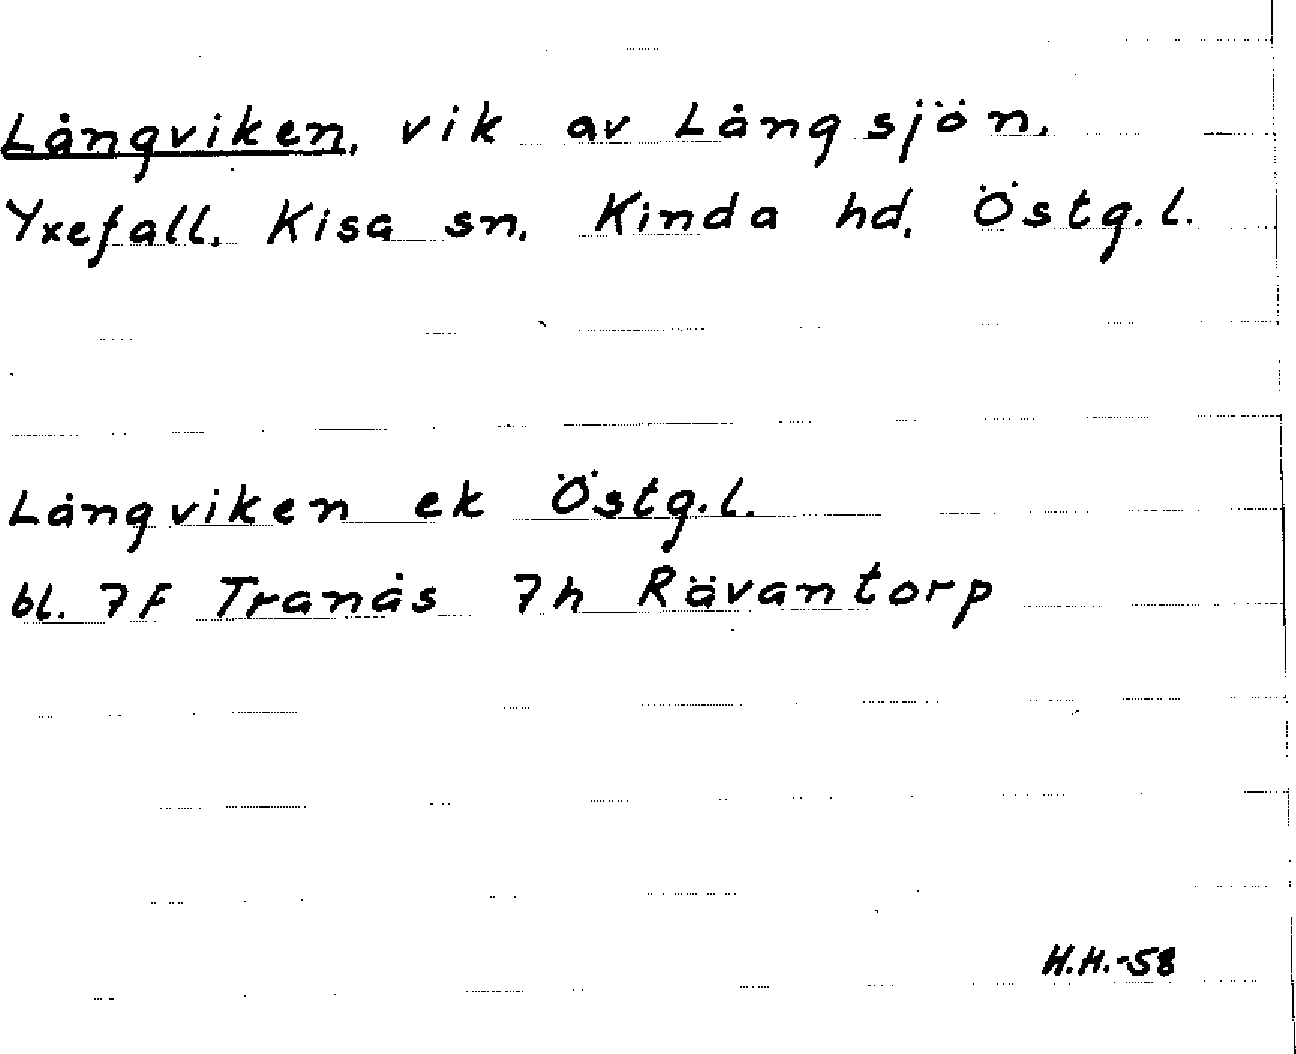 Långviken, vik av Långsjön.
Yxefall. Kisa sn. Kinda hd. Östg.l.
Långviken ek Östg.l.
bl. 7F Tranås 7h Rävantorp
H.H.-58